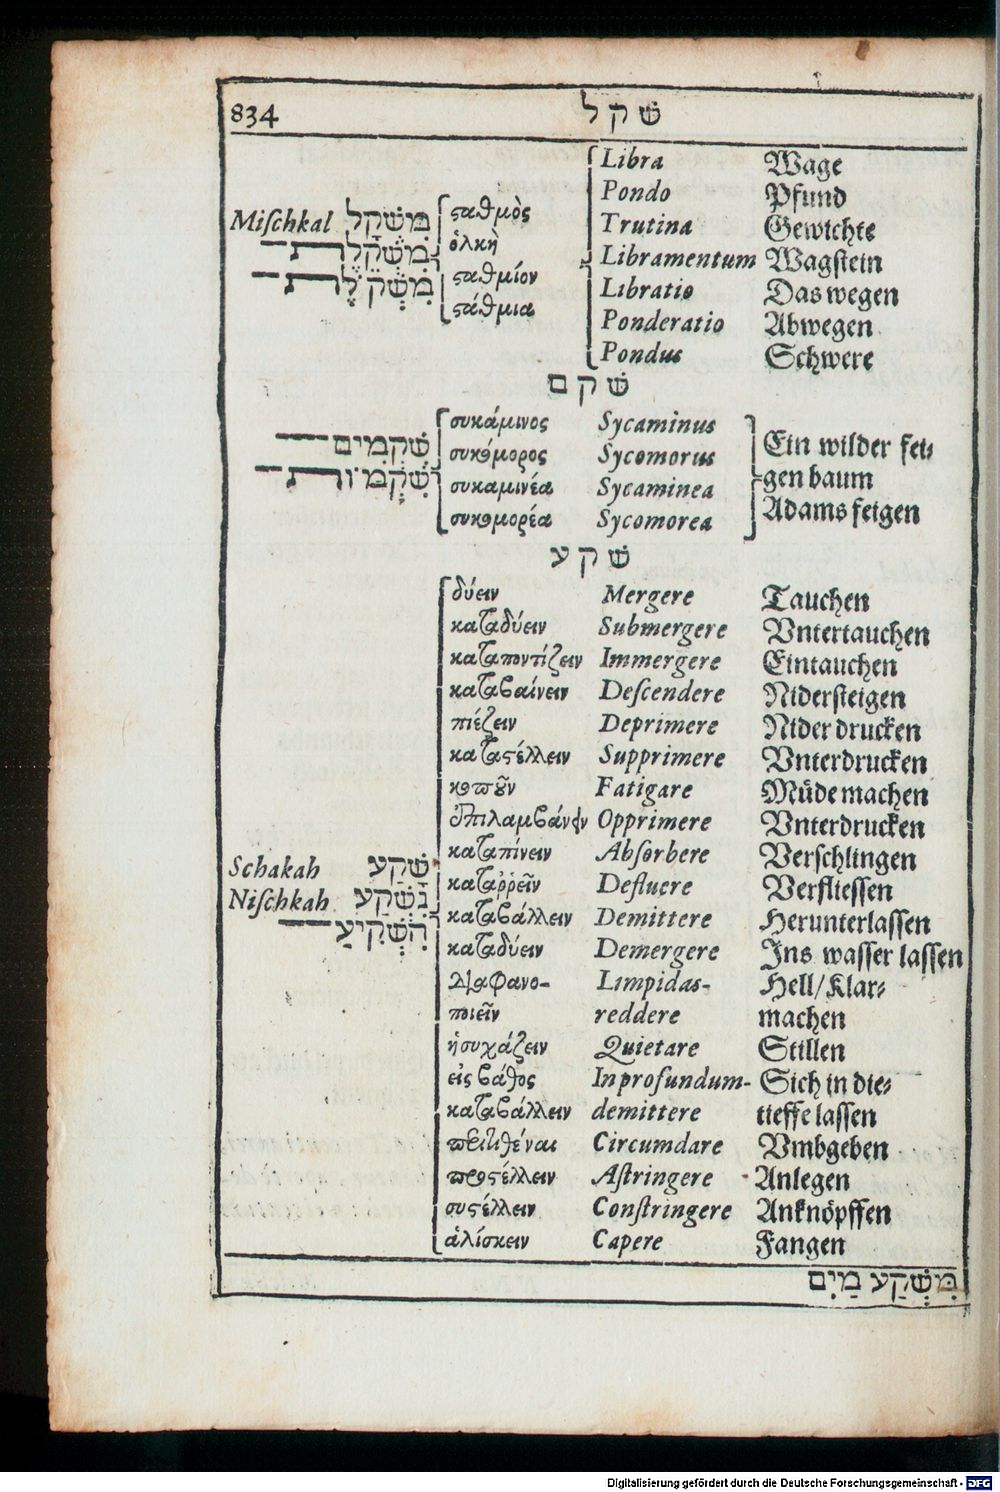 834 שׁקל
Libra Wage
Pondo Pfund
Mischkal מִשְׁקָל ςαθμὸς Trutina Gewichte
מִשְׁקֶלֶת— ὁλκὴ Libramentum Wagstein
מִשְׁקֹלֶת— ςαθμίον Libratio Das wegen
ςάθμια Ponderatio Abwegen
Pondus Schwere
שׁקם
συκάμινος Sycaminus Ein wilder fei⸗
שִׁקְמִים— συκόμορος Sycomorus gen baum
שִׁקְמוֹת— συκαμινέα Sycaminea Adams feigen
συκομορέα Sycomorea
שׁקע
δύειν Mergere Tauchen
καταδύειν Submergere Vntertauchen
καταποντίζειν Immergere Eintauchen
καταβαίνειν Descendere Nidersteigen
πιέζειν Deprimere Nider drucken
καταςέλλειν Supprimere Vnterdrucken
κοποῦν Fatigare Müde machen
ἐπιλαμβάνειν Opprimere Vnterdrucken
Schakah שָׁקַע καταπίνειν Absorbere Verschlingen
Nischkah נִשְׁקַע καταῤῥεῖν Defluere Verfliessen
הִשְׁקִיעַ— καταβάλλειν Demittere Herunterlassen
καταδύειν Demergere Ins wasser lassen
διαφανο- Limpidas- Hell/Klar⸗
ποιεῖν reddere machen
ἡσυχάζειν Quietare Stillen
εἰς βάθος In profundum- Sich in die⸗
καταβάλλειν demittere tieffe lassen
περιτιθέναι Circumdare Vmbgeben
προςέλλειν Astringere Anlegen
συςέλλειν Constringere Anknöpffen
ἁλίσκειν Capere Fangen
מִשְׁקַע מַיִם
Digitalisierung gefördert durch die Deutsche Forschungsgemeinschaft - DFG